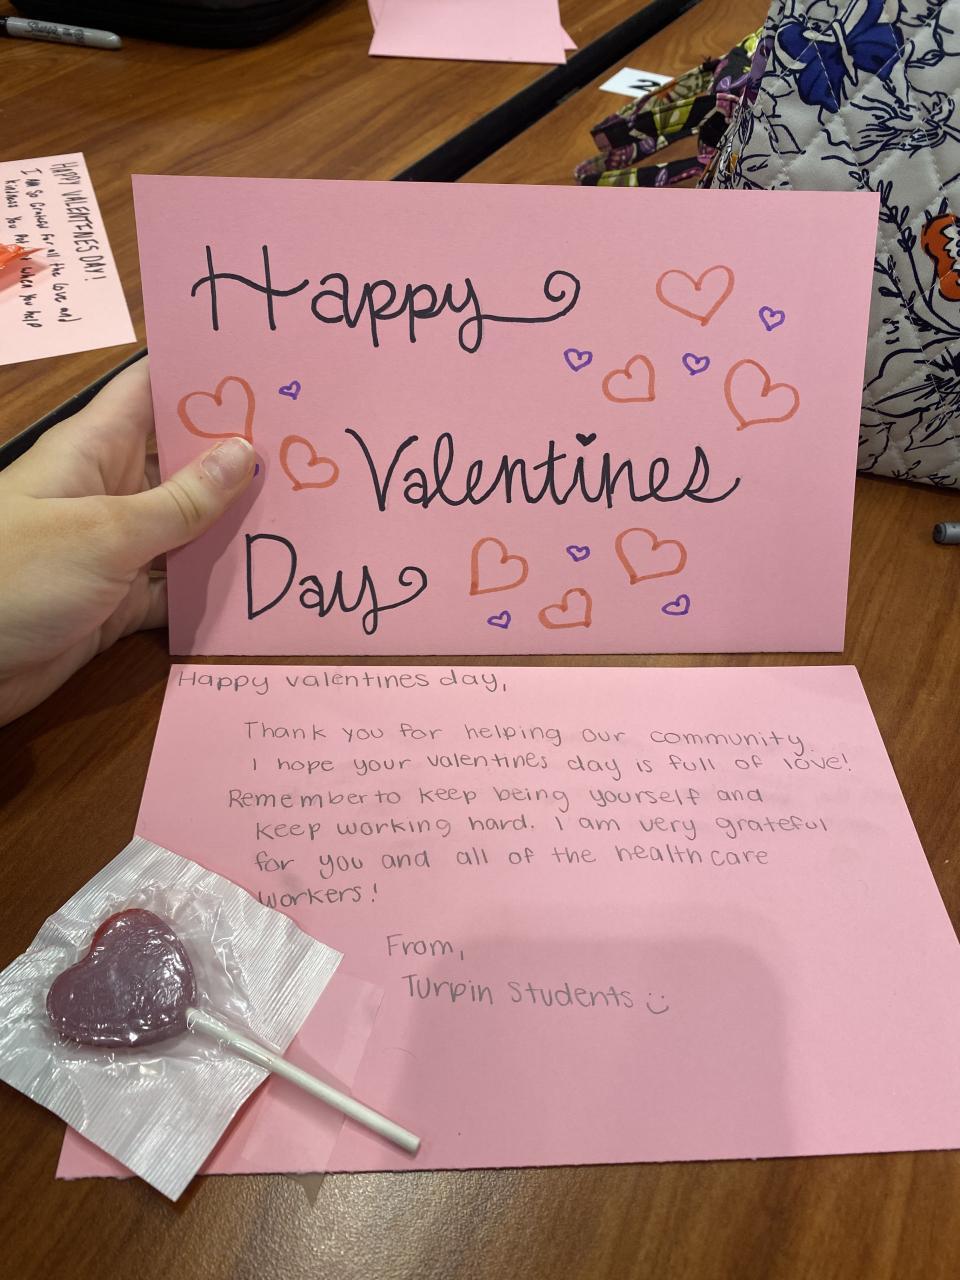 Sharpie
2
HAPPY VALENTINES DAY!
I am so grateful for all the love and
kindness you
when you help
Happy
Valentines
Day
Happy valentines day,
Thank you for helping our community.
I hope your valentines day is full of love!
Remember to keep being yourself and
keep working hard. I am very grateful
for you and all of the health care
workers!
From,
Turpin Students :)